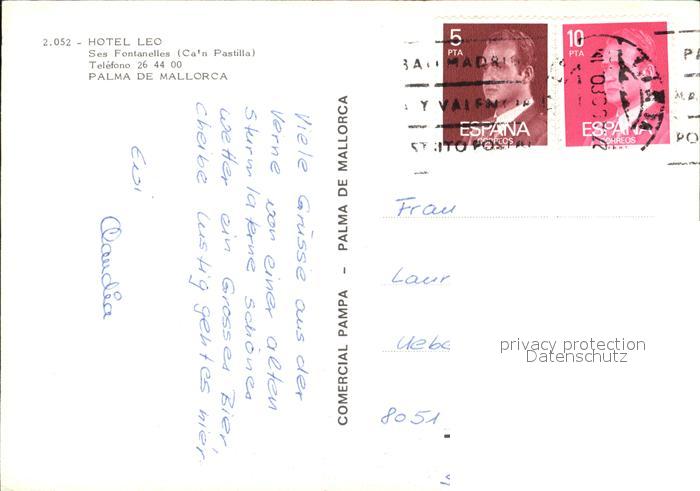 2.052 - HOTEL LEO
Ses Fontanelles (Ca'n Pastilla)
Teléfono 26 44 00
PALMA DE MALLORCA
Viele Grüsse aus der
Verne von einer alten
Sturmlaterne schönes
Wetter ein Grosses Bier
cheibe lustig gehtes hier.
Eusi
Claudia
COMERCIAL PAMPA - PALMA DE MALLORCA
5
PTA
ESPAÑA
CORREOS
10
PTA
ESPAÑA
CORREOS
MADRID
Y VALENCIA
Frau
Laur
Uebe
8051
privacy protection
Datenschutz